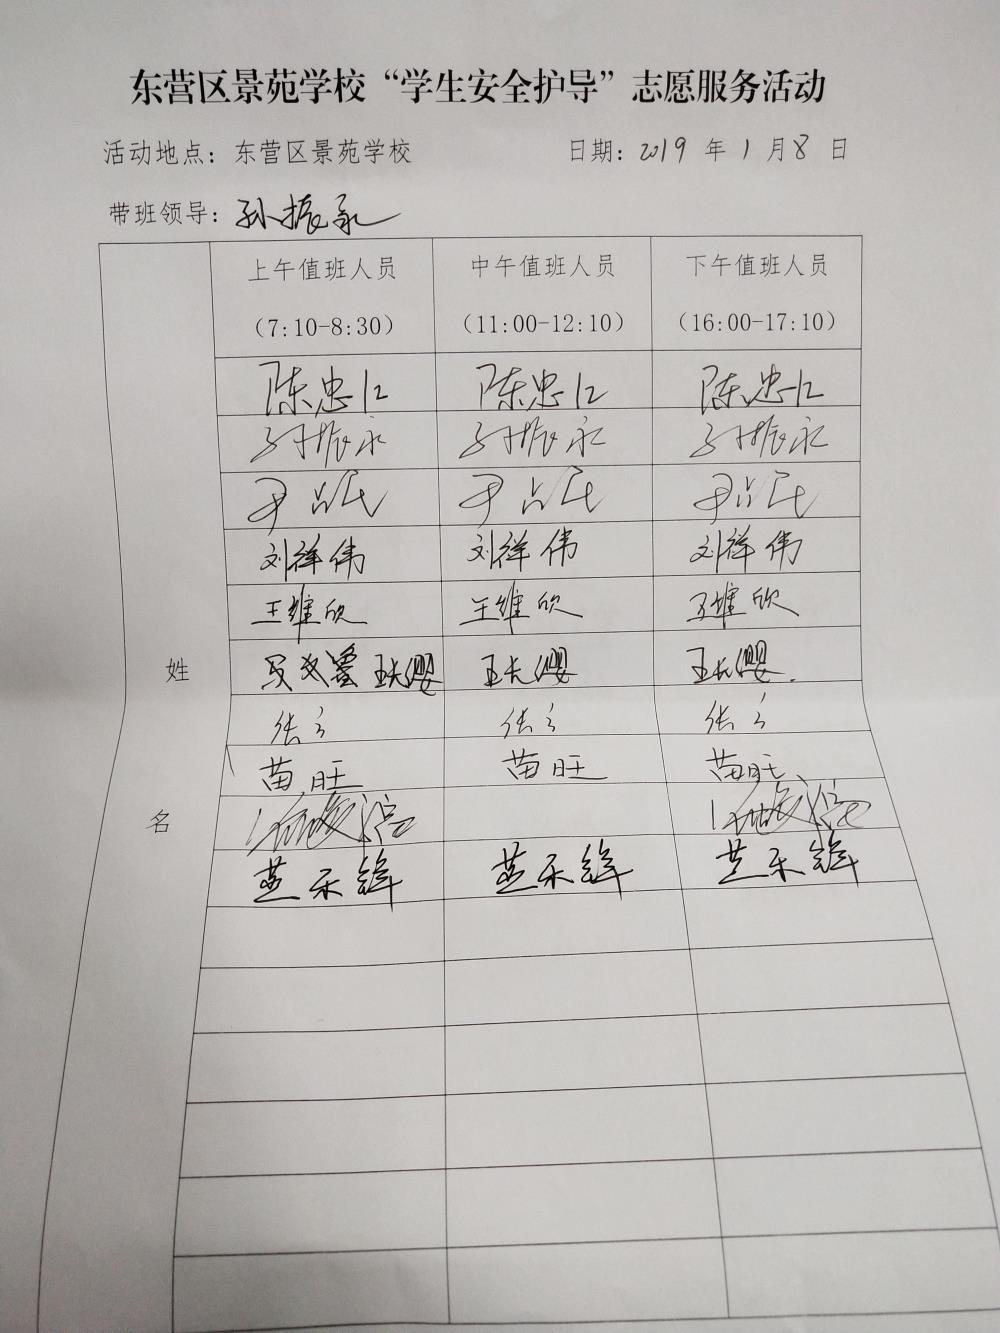 东营区景苑学校“学生安全护导”志愿服务活动
活动地点：东营区景苑学校 日期：2019 年 1 月 8 日
带班领导：孙振永
上午值班人员 中午值班人员 下午值班人员
（7:10-8:30） （11:00-12:10） （16:00-17:10）
陈忠仁 陈忠仁 陈忠仁
孙振永 孙振永 孙振永
尹占民 尹占民 尹占民
刘祥伟 刘祥伟 刘祥伟
王维欣 王维欣 王维欣
姓 王长缨 王长缨 王长缨
张 张 张
苗旺 苗旺 苗旺
名